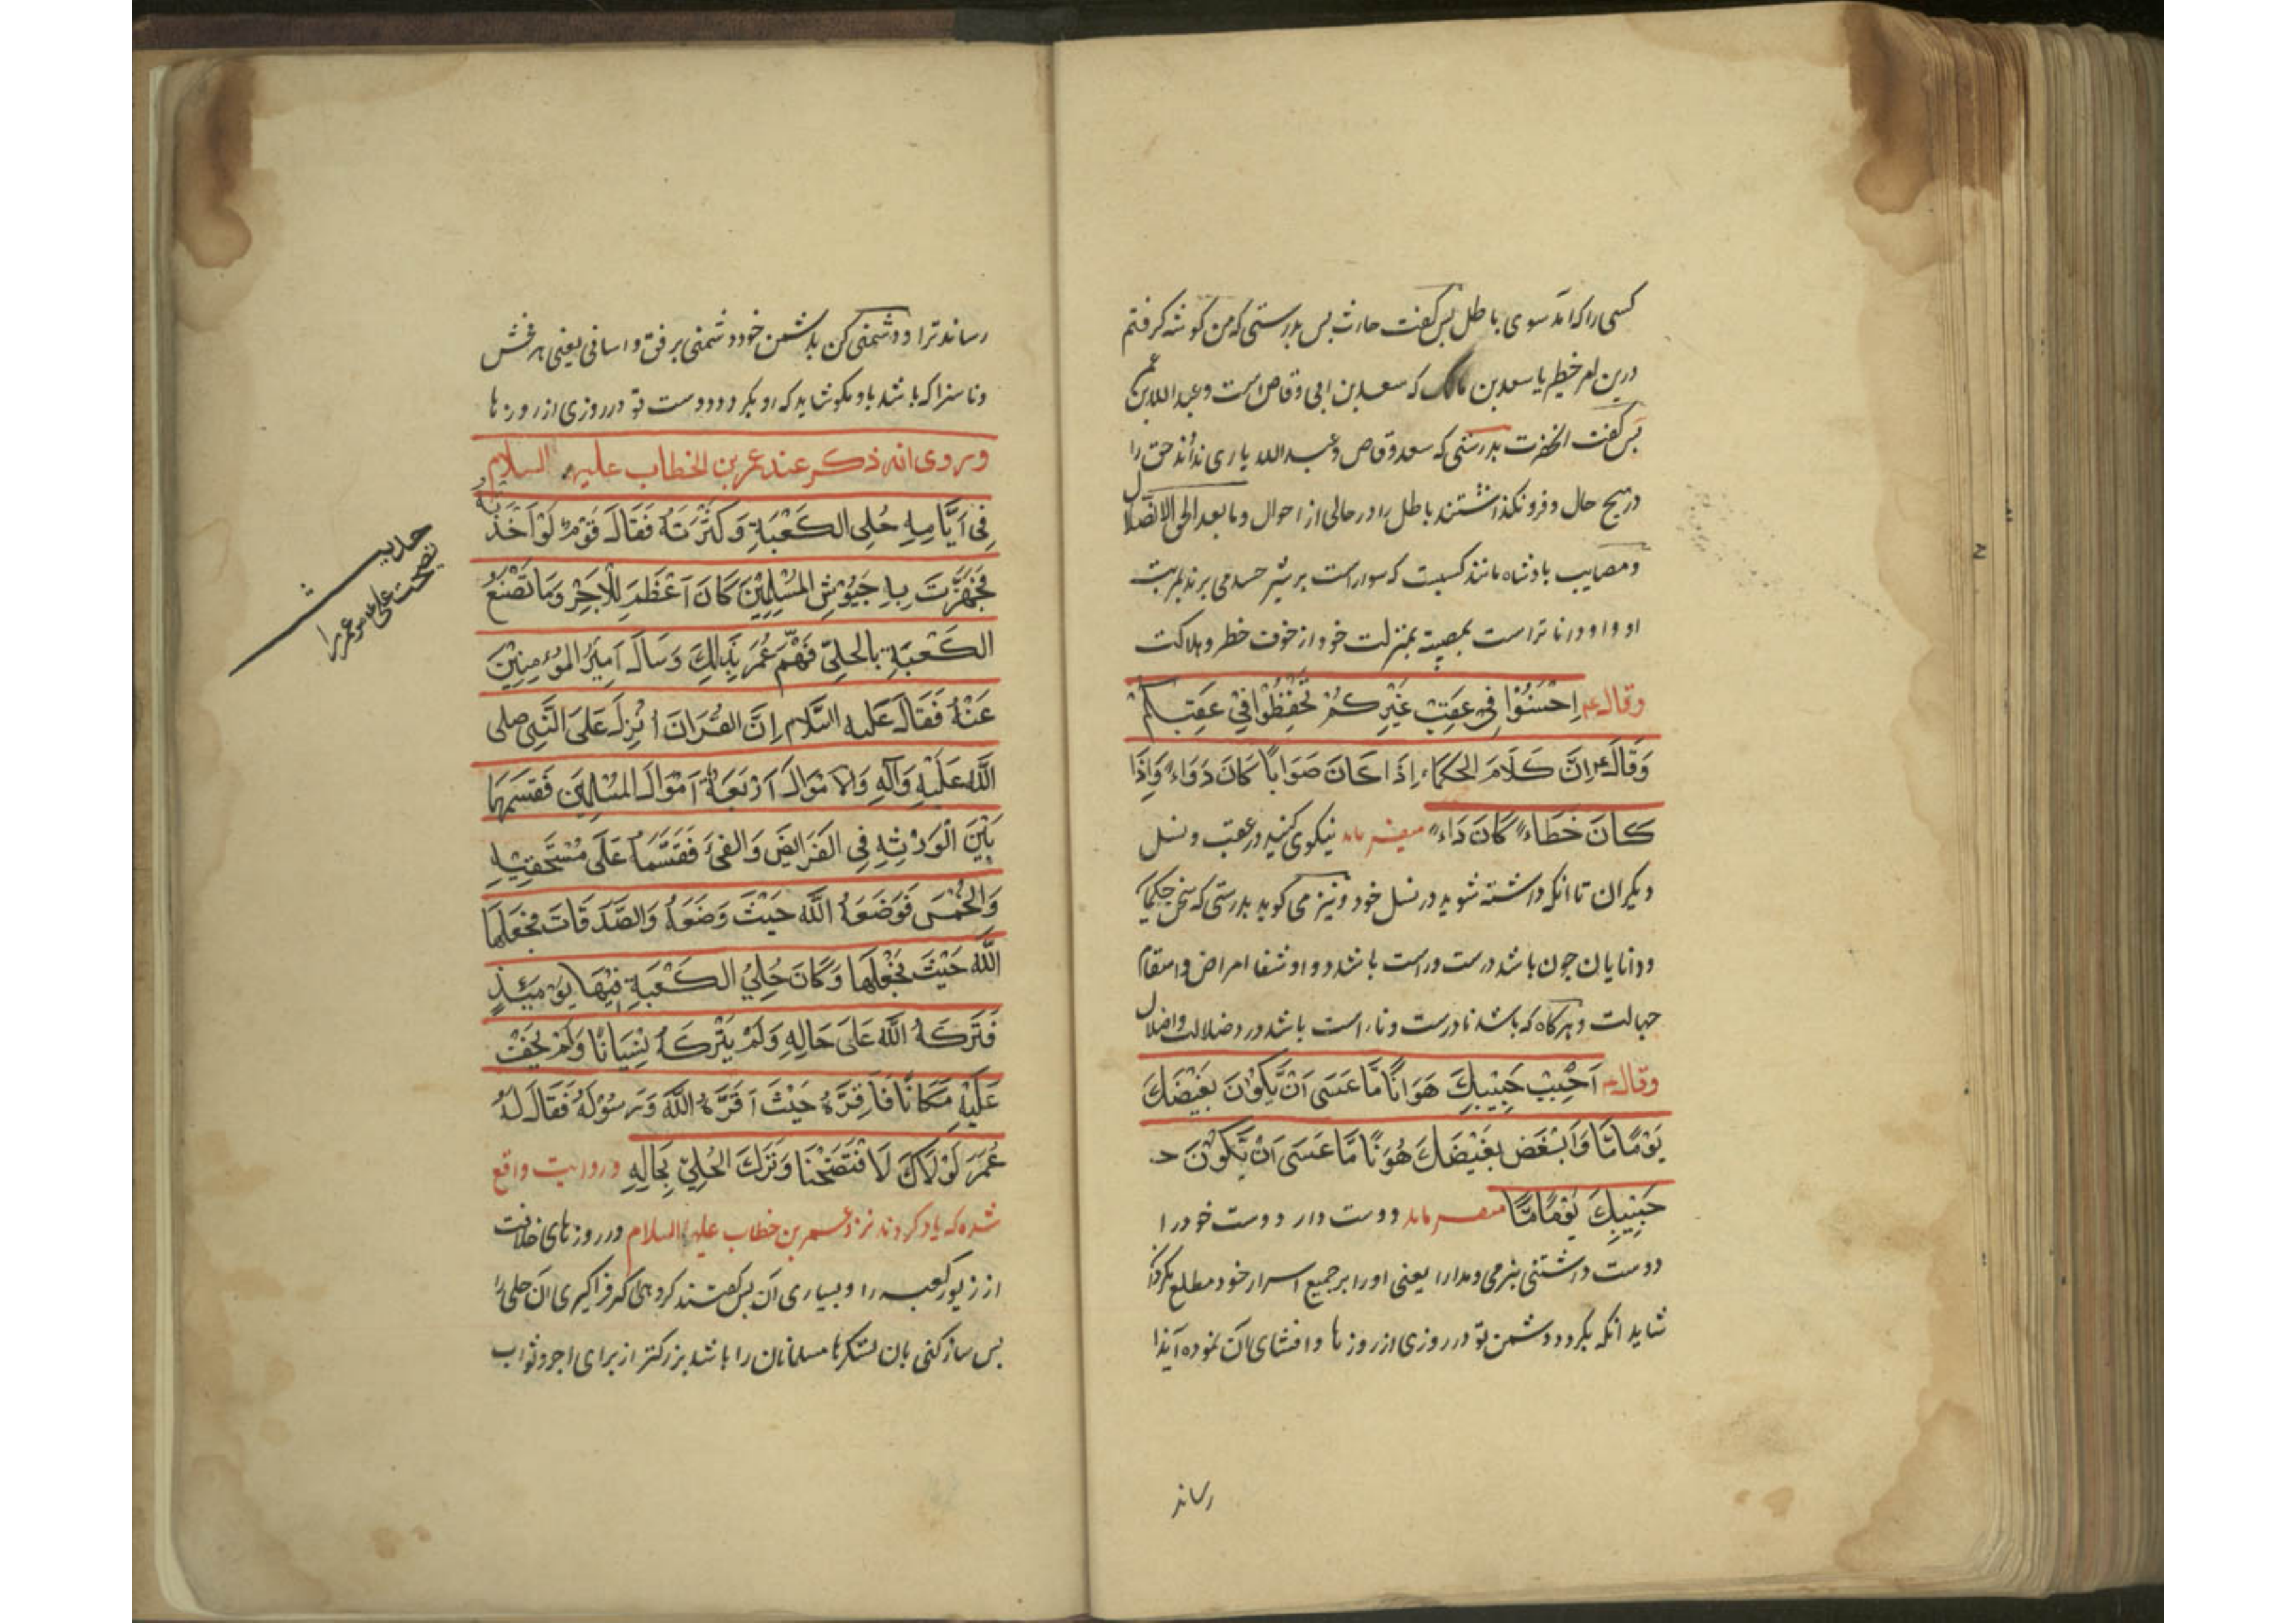 کسی را که آمد سوی باطل پس گفت حارث پس بدرستی که من کوشه کرفتم
درین امر خطیر یا سعد بن مالک که سعد بن ابی وقاص است و عبد الله بن عمر
پس گفت انحضرت بدرستی که سعد وقاص و عبد الله یاری نداند حق را
در هیچ حال و فرو نکذاشتند باطل را در حالی از احوال وما بعد الحق الا الضلال
و مصایب بادشاه مانند کسیست که سوار است بر شیر حسد می برند بمرتبت
او و او داناتر است بمصیبه بمنزلت خود از خوف خطر و هلاکت
وقال ع اِحْسَنُوْا فِی عَقِبِ غَیْرِکُمْ تُحْفَظُوْا فِیْ عَقِبِکُمْ
وَقَالَ ع اِنَّ کَلَامَ الحُکَمَاءِ اِذَا کَانَ صَوَابًا کَانَ دَوَاءً وَاِذَا
کَانَ خَطَاءً کَانَ دَاءً میفرماید نیکوی کنید در عقب و نسل
دیکران تا انکه داشته شوید در نسل خود و نیز می کوید بدرستی که سخن حکیما
و دانایان چون باشد درست و راست باشد دوا و شفا امراض و اسقام
جهالت و هرکاه که باشد نادرست و ناراست باشد درد ضلالت و اضلال
وقال ع اَحْبِبْ حَبِیْبَکَ هَوَانًا مَّا عَسَی اَنْ یَّکُوْنَ بَغِیْضَکَ
یَوْمًا مَّا وَاَبْغَضْ بَغِیْضَکَ هَوْنًا مَّا عَسَی اَنْ یَّکُوْنَ حـ
حَبِیْبَکَ یَوْمًا مَّا میفرماید دوست دار دوست خود را
دوست داشتنی بنرمی و مدارا یعنی او را بر جمیع اسرار خود مطلع مکردان
شاید انکه بکردد دشمن تو در روزی از روزها و افشای آن نموده آیذا
رساند
رساند ترا و دشمنی کن بدشمن خود دشمنی برفق و اسانی یعنی هر فحش
و ناسزا که باشد باو مکو شاید که او بکردد دوست تو در روزی از روزها
وروی انه ذکر عند عمر بن الخطاب علیه السلام
فِی اَیَّامِهِ حُلِی الکَعْبَةِ وَکَثْرَتَهُ فَقَالَ قَوْمٌ لَوْ اَخَذْتَهُ
فَجَهَّزْتَ بِهِ جُیُوْشَ المُسْلِمِیْنَ کَانَ اَعْظَمَ لِلْاَجْرِ وَمَا تَصْنَعُ
الکَعْبَةِ بِالحُلِیِّ فَهَّمَ عُمَرَ بِذَلِکَ وَسَاَلَ اَمِیْرَ المُوْمِنِیْنَ
عَنْهُ فَقَالَ عَلیه السَّلام اِنَّ القُرَانَ اُنْزِلَ عَلَی النَّبِی صلی
اللهُ عَلَیْهِ وَآلِهِ وَالاَمْوَالَ اَرْبَعَةٌ اَمْوَالَ المُسْلِمِیْنَ فَقَسَّمَهَا
بَیْنَ الْوَرَثِهِ فِی الفَرَایِضِ وَالفَیْءَ فَقَسَّمَهُ عَلَی مُسْتَحِقِیْهِ
وَالخُمْسَ فَوَضَعَهُ اللهُ حَیْثَ وَضَعَهُ وَالصَّدَقَاتَ فَجَعَلَهَا
اللهُ حَیْثَ یَجْعَلُهَا وَکَانَ حُلِیُ الکَعْبَةِ فِیْهَا یَوْمَئِذٍ
فَتَرَکَهُ اللهُ عَلَی حَالِهِ وَلَمْ یَتْرُکْهُ نِسْیَانًا وَلَمْ یَخَفْ
عَلَیْهِ مَکَانًا فَاَقِرَّهُ حَیْثَ اَقَرَّهُ اللهُ وَرَسُوْلُهُ فَقَالَ لَهُ
عُمَرَ لَوْلَاکَ لَافْتَضَحْنَا وَتَرَکَ الحُلِیَّ بِحَالِهِ و روایت واقع
شده که یاد کردند نزد عمر بن خطاب علیه السلام در روزهای خلافت
از زیور کعبه را و بسیاری آن پس کفتند کروهی اکر فراکیری ان حلی را
پس ساز کنی بان لشکرها مسلمانان را باشد بزرکتر از برای اجر و ثواب
حدیث
نصیحت علی عمر را